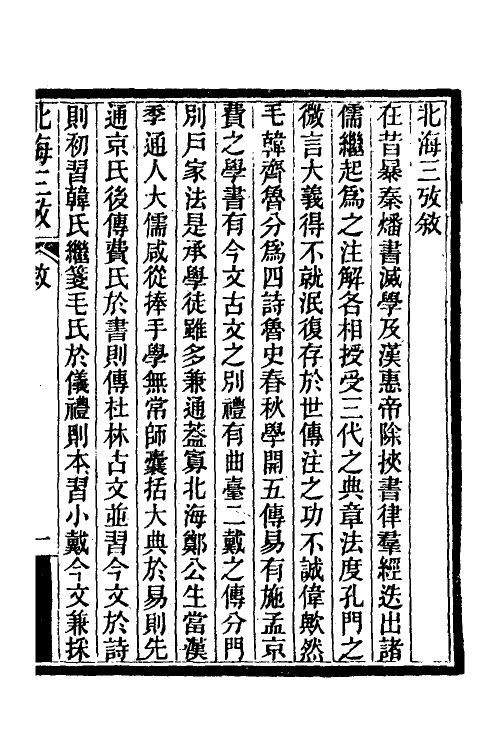 北海三攷敘
在昔暴秦燔書滅學及漢惠帝除挾書律羣經迭出諸
儒繼起爲之注解各相授受三代之典章法度孔門之
微言大義得不就泯復存於世傳注之功不誠偉歟然
毛韓齊魯分爲四詩魯史春秋學開五傳易有施孟京
費之學書有今文古文之別禮有曲臺二戴之傳分門
別戶家法是承學徒雖多兼通葢寡北海鄭公生當漢
季通人大儒咸從捧手學無常師囊括大典於易則先
通京氏後傳費氏於書則傳杜林古文並習今文於詩
則初習韓氏繼箋毛氏於儀禮則本習小戴今文兼採
北海三攷 敘 一